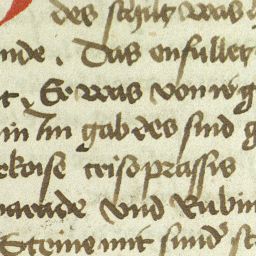 des schilt was
nde . Das enfullet
t . Er was von
in Im gab des sind
ekoise crisoprassis
arade vnd Rubin
Steine mit sund